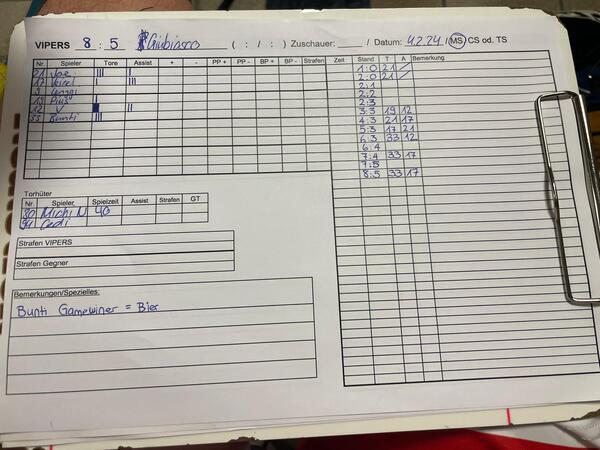 VIPERS 8 : 5 Giubiasco ( : / : ) Zuschauer: ____ / Datum: 4.2.24 / MS CS od. TS
Nr. Spieler Tore Assist + - PP + PP - BP + BP - Strafen
21 Joe III I
17 I III
9
19 Pius
12 V II
33 Bunti III
Zeit Stand T A Bemerkung
1:0 21 /
2:0 21 /
2:1
2:2
2:3
3:3 19 12
4:3 21 17
5:3 17 21
6:3 33 12
6:4
7:4 33 17
7:5
8:5 33 17
Torhüter
Nr. Spieler Spielzeit Assist Strafen GT
30 Michi N 40
94 Cedi
Strafen VIPERS
Strafen Gegner
Bemerkungen/Spezielles:
Bunti Gamewiner = Bier